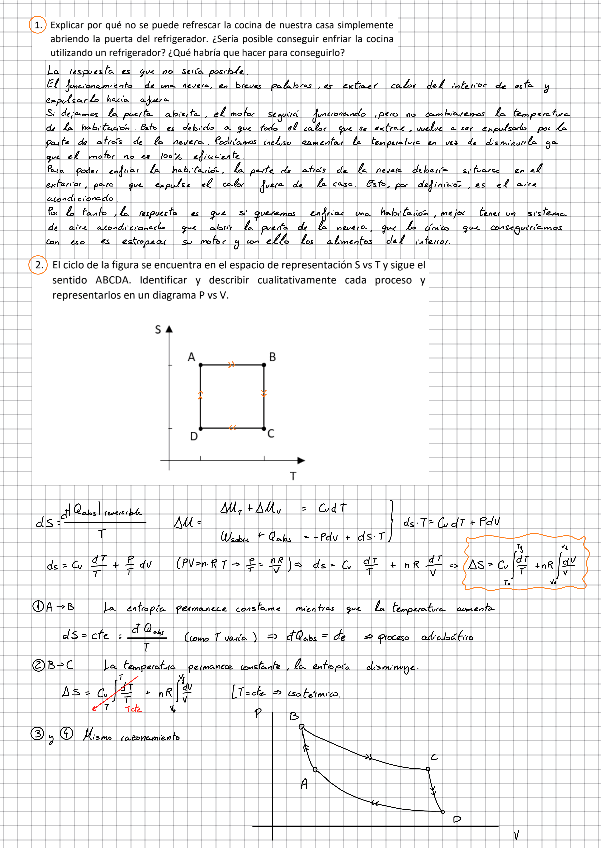 1. Explicar por qué no se puede refrescar la cocina de nuestra casa simplemente
abriendo la puerta del refrigerador. ¿Sería posible conseguir enfriar la cocina
utilizando un refrigerador? ¿Qué habría que hacer para conseguirlo?
La respuesta es que no sería posible.
El funcionamiento de una nevera, en breves palabras, es extraer calor del interior de esta y
expulsarlo hacia afuera
Si dejamos la puerta abierta, el motor seguirá funcionando, pero no cambiaremos la temperatura
de la habitación. Esto es debido a que todo el calor que se extrae, vuelve a ser expulsado por la
parte de atrás de la nevera. Podríamos incluso aumentar la temperatura en vez de disminuirla ya
que el motor no es 100% eficiente
Para poder enfriar la habitación, la parte de atrás de la nevera debería situarse en el
exterior, para que expulse el calor fuera de la casa. Esto, por definición, es el aire
acondicionado
Por lo tanto, la respuesta es que si queremos enfriar una habitación, mejor tener un sistema
de aire acondicionado que abrir la puerta de la nevera, que lo único que conseguiríamos
con eso es estropear su motor y con ello los alimentos del interior.
2. El ciclo de la figura se encuentra en el espacio de representación S vs T y sigue el
sentido ABCDA. Identificar y describir cualitativamente cada proceso y
representarlos en un diagrama P vs V.
S
A B
D C
T
dS = đQabs|reversible / T ΔU = ΔU_T + ΔU_V = CvdT
Wsobre + Qabs = -PdV + dS·T } dS·T = CvdT + PdV
ds = Cv dT/T + P/T dV (PV=n·RT → P/T = nR/V) ⇒ ds = Cv dT/T + nR dV/V ⇒ ΔS = Cv∫dT/T + nR∫dV/V
① A→B La entropía permanece constante mientras que la temperatura aumenta
dS = cte = đQabs/T (como T varía) ⇒ đQabs = cte ⇒ proceso adiabático
② B→C La temperatura permanece constante, la entropía disminuye.
ΔS = Cv∫dT/T + nR∫dV/V LT=cte ⇒ isotérmico.
Tcte
③ y ④ Mismo razonamiento
P
B
C
A
D
V